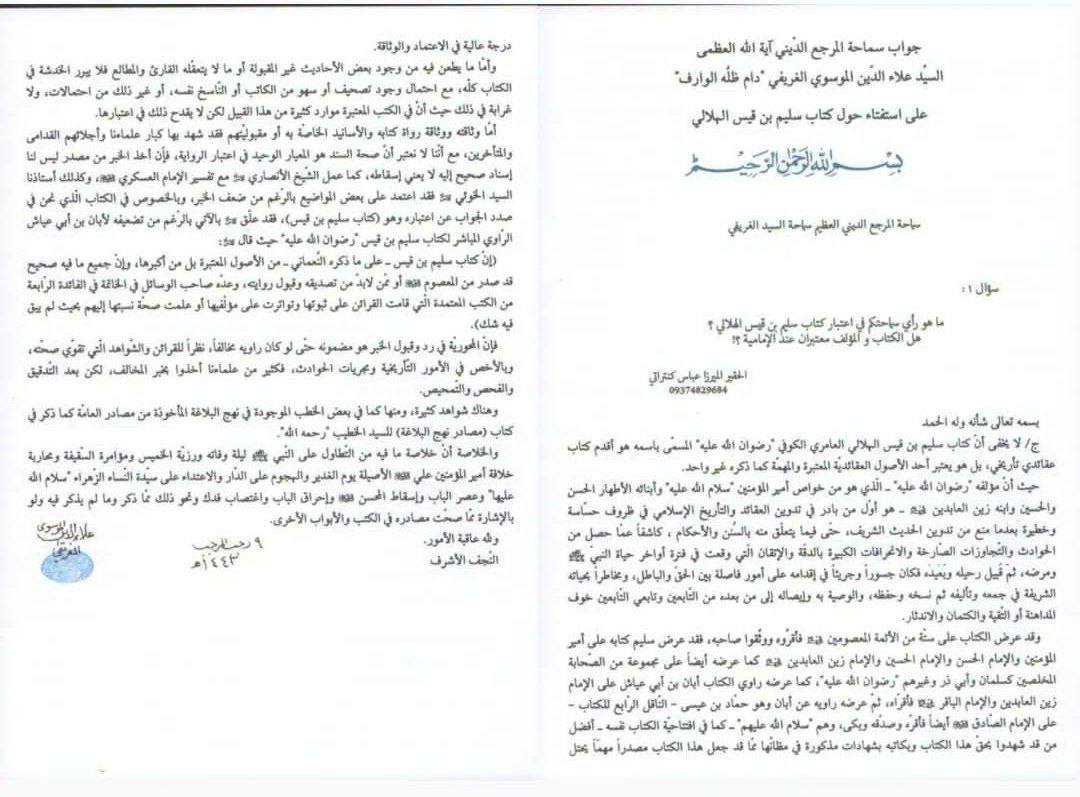 جواب سماحة المرجع الدّيني آية الله العظمى
السيّد علاء الدّين الموسوي الغريفي "دام ظلّه الوارف"
على استفتاء حول كتاب سليم بن قيس الهلالي
بسم الله الرحمن الرحيم
سماحة المرجع الديني العظيم سماحة السيد الغريفي
سؤال ١:
ما هو رأي سماحتكم في اعتبار كتاب سليم بن قيس الهلالي ؟
هل الكتاب و المؤلف معتبران عند الإمامية ؟!
الحقير الميرزا عباس كنتراتي
09374829684
بسمه تعالى شأنه وله الحمد
ج/ لا يخفى أنّ كتاب سليم بن قيس الهلالي العامري الكوفي "رضوان الله عليه" المسمّى باسمه هو أقدم كتاب
عقائدي تأريخي، بل هو يعتبر أحد الأصول العقائديّة المعتبرة والمهمّة كما ذكره غير واحد.
حيث أنّ مؤلفه "رضوان الله عليه" ـ الّذي هو من خواص أمير المؤمنين "سلام الله عليه" وأبنائه الأطهار الحسن
والحسين وابنه زين العابدين ـ هو أوّل من بادر في تدوين العقائد والتأريخ الإسلامي في ظروف حسّاسة
وخطيرة بعدما منع من تدوين الحديث الشريف، حتّى فيما يتعلّق منه بالسُنن والأحكام، كاشفاً عمّا حصل من
الحوادث والتجاوزات الصّارخة والانحرافات الكبيرة بالدقّة والإتقان الّتي وقعت في فترة أواخر حياة النبيّ ﷺ
ومرضه، ثمّ قُبيل رحيله وبُعَيدَه فكان جسوراً وجريئاً في إقدامه على أمور فاصلة بين الحقّ والباطل، ومخاطراً بحياته
الشريفة في جمعه وتأليفه ثم نسخه وحفظه، والوصية به وإيصاله إلى من بعده من التّابعين وتابعي التّابعين خوف
المداهنة أو التّقية والكتمان والاندثار.
وقد عرض الكتاب على ستّة من الأئمة المعصومين فأقرّوه ووثّقوا صاحبه، فقد عرض سليم كتابه على أمير
المؤمنين والإمام الحسن والإمام الحسين والإمام زين العابدين كما عرضه أيضاً على مجموعة من الصّحابة
المخلصين كسلمان وأبي ذر وغيرهم "رضوان الله عليه"، كما عرضه راوي الكتاب أبان بن أبي عياش على الإمام
زين العابدين والإمام الباقر فأقرّاه، ثمّ عرضه راويه عن أبان وهو حمّاد بن عيسى – النّاقل الرّابع للكتاب –
على الإمام الصّادق أيضاً فأقرّه وصدّقه وبكى، وهم "سلام الله عليهم" ـ كما في افتتاحيّة الكتاب نفسه ـ أفضل
من قد شهدوا بحقّ هذا الكتاب وبكاتبه بشهادات مذكورة في مظانّها ممّا قد جعل هذا الكتاب مصدراً مهمّاً يحتل
درجة عالية في الاعتماد والوثاقة.
وأمّا ما يطعن فيه من وجود بعض الأحاديث غير المقبولة أو ما لا يتعقّله القارئ والمطالع فلا يبرر الخدشة في
الكتاب كلّه، مع احتمال وجود تصحيف أو سهو من الكاتب أو النّاسخ نفسه، أو غير ذلك من احتمالات، ولا
غرابة في ذلك حيث أنّ في الكتب المعتبرة موارد كثيرة من هذا القبيل لكن لا يقدح ذلك في اعتبارها.
أمّا وثاقته ووثاقة رواة كتابه والأسانيد الخاصّة به أو مقبوليّتهم فقد شهد بها كبار علمائنا وأجلائهم القدامى
والمتأخرين، مع أنّنا لا نعتبر أنّ صحة السند هو المعيار الوحيد في اعتبار الرواية، فإن أخذ الخبر من مصدر ليس لنا
إسناد صحيح إليه لا يعني إسقاطه، كما عمل الشّيخ الأنصاري مع تفسير الإمام العسكري ، وكذلك أستاذنا
السيد الخوئي فقد اعتمد على بعض المواضيع بالرغم من ضعف الخبر، وبالخصوص في الكتاب الّذي نحن في
صدد الجواب عن اعتباره وهو (كتاب سليم بن قيس)، فقد علّق بالآتي بالرّغم من تضعيفه لأبان بن أبي عياش
الرّاوي المباشر لكتاب سليم بن قيس "رضوان الله عليه" حيث قال :
(إنّ كتاب سليم بن قيس ـ على ما ذكره النّعماني ـ من الأصول المعتبرة بل من أكبرها، وإنّ جميع ما فيه صحيح
قد صدر من المعصوم أو ممّن لابدّ من تصديقه وقبول روايته، وعدّه صاحب الوسائل في الخاتمة في الفائدة الرّابعة
من الكتب المعتمدة الّتي قامت القرائن على ثبوتها وتواترت على مؤلّفيها أو علمت صحّة نسبتها إليهم بحيث لم يبق
فيه شك).
فإنّ المحوريّة في رد وقبول الخبر هو مضمونه حتّى لو كان راويه مخالفاً، نظراً للقرائن والشّواهد الّتي تقوّي صحّته،
وبالأخص في الأمور التّأريخية ومجريات الحوادث، فكثير من علماءنا أخذوا بخبر المخالف، لكن بعد التّدقيق
والفحص والتّمحيص.
وهناك شواهد كثيرة، ومنها كما في بعض الخطب الموجودة في نهج البلاغة المأخوذة من مصادر العامّة كما ذكر في
كتاب (مصادر نهج البلاغة) للسيد الخطيب "رحمه الله".
والخلاصة أنّ خلاصة ما فيه من التّطاول على النّبي ﷺ ليلة وفاته ورزيّة الخميس ومؤامرة السّقيفة ومحاربة
خلافة أمير المؤمنين علي الأصيلة يوم الغدير والهجوم على الدّار والاعتداء على سيّدة النّساء الزهراء "سلام الله
عليها" وعصر الباب وإسقاط المحسن وإحراق الباب واغتصاب فدك ونحو ذلك ممّا ذكر وما لم يذكر فيه ولو
بالإشارة ممّا صحّت مصادره في الكتب والأبواب الأخرى.
ولله عاقبة الأمور.
النّجف الأشرف
٩ رجب المرجب
١٤٤٣هـ
علاء الدين الموسوي
الغريفي